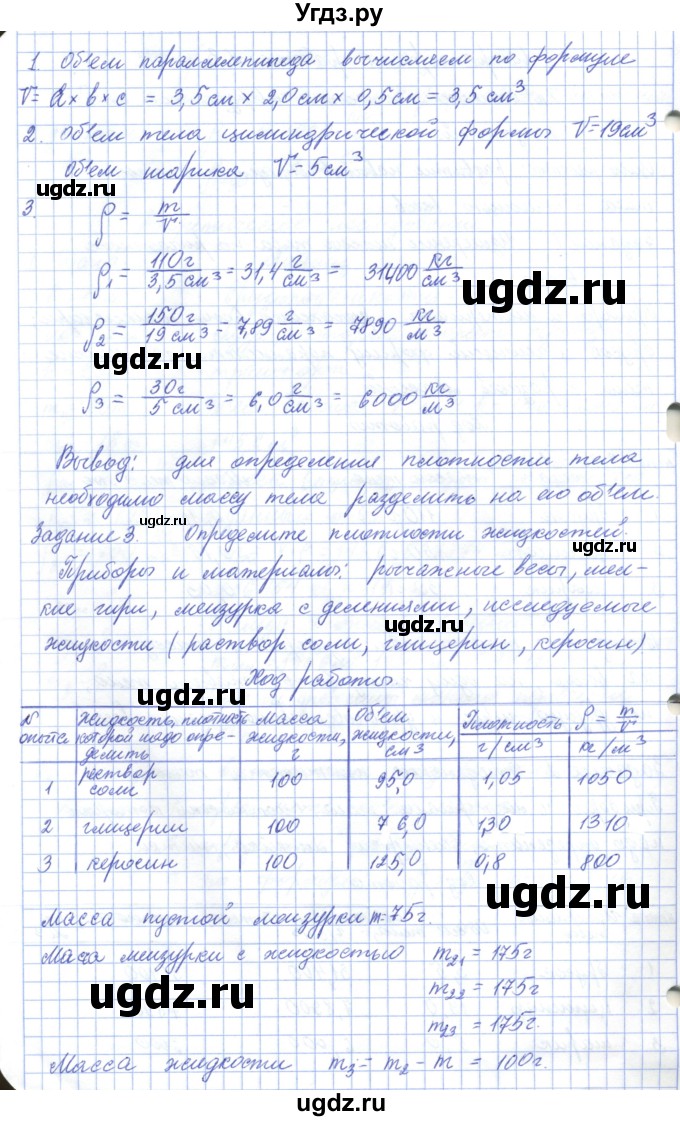 Угдз.ру
1. Об'ем параллелепипеда вычисляем по формуле
V= a×b×c = 3,5см × 2,0см × 0,5см = 3,5 см³
2. Об'ем тела цилиндрической формы V=19см³
Об'ем шарика V=5см³
ugdz.ru ugdz.ru
3. ρ = m/V
ρ₁ = 110г/3,5 см³ = 31,4 г/см³ = 31400 кг/см³
ugdz.ru
ρ₂ = 150г/19 см³ = 7,89 г/см³ = 7890 кг/м³
ugdz.ru
ρ₃ = 30г/5 см³ = 6,0 г/см³ = 6000 кг/м³
Вывод: для определения плотности тела
необходимо массу тела разделить на его об'ем.
ugdz.ru
Задание 3. Определите плотности жидкостей.
ugdz.ru
Приборы и материалы: рычажные весы, мел-
кие гири, мензурка с делениями, исследуемые
ugdz.ru
жидкости (раствор соли, глицерин, керосин)
Ход работы
ugdz.ru
N опыта | Жидкость, плотность которой надо опре-делить | Масса жидкости, г | Об'ем жидкости, см3 | Плотность ρ = m/V г/см³ | кг/м³
1 | роствор соли | 100 | 95,0 | 1,05 | 1050
2 | глицерин | 100 | 76,0 | 1,30 | 1310
3 | керосин | 100 | 125,0 | 0,8 | 800
ugdz.ru
Масса пустой мензурки m=75г.
Масса мензурки с жидкостью m₂₁ = 175г
ugdz.ru
m₂₂ = 175г
m₂₃ = 175г.
Масса жидкости m₃ = m₂ - m = 100г.
ugdz.ru